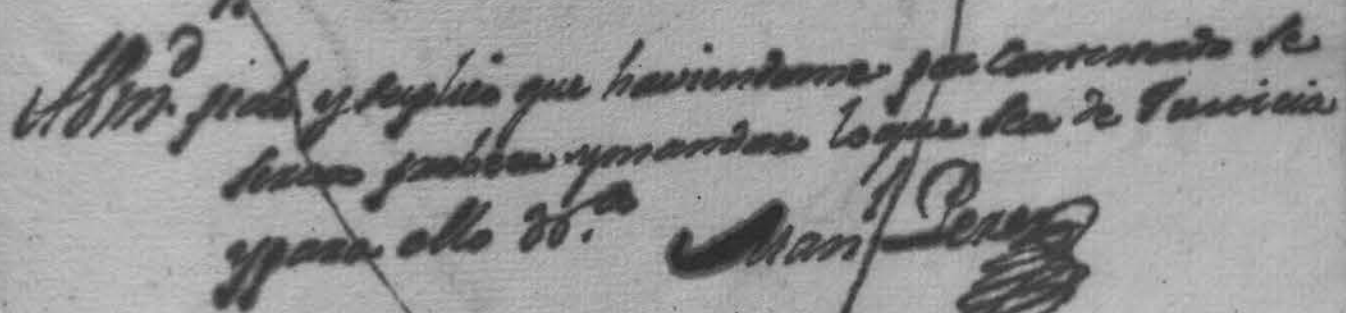 A Vm.d pido y suplico que haviendome por Conformado se
sirva proveer y mandar lo que sea de Justicia
y para ello &.a Juan Perez